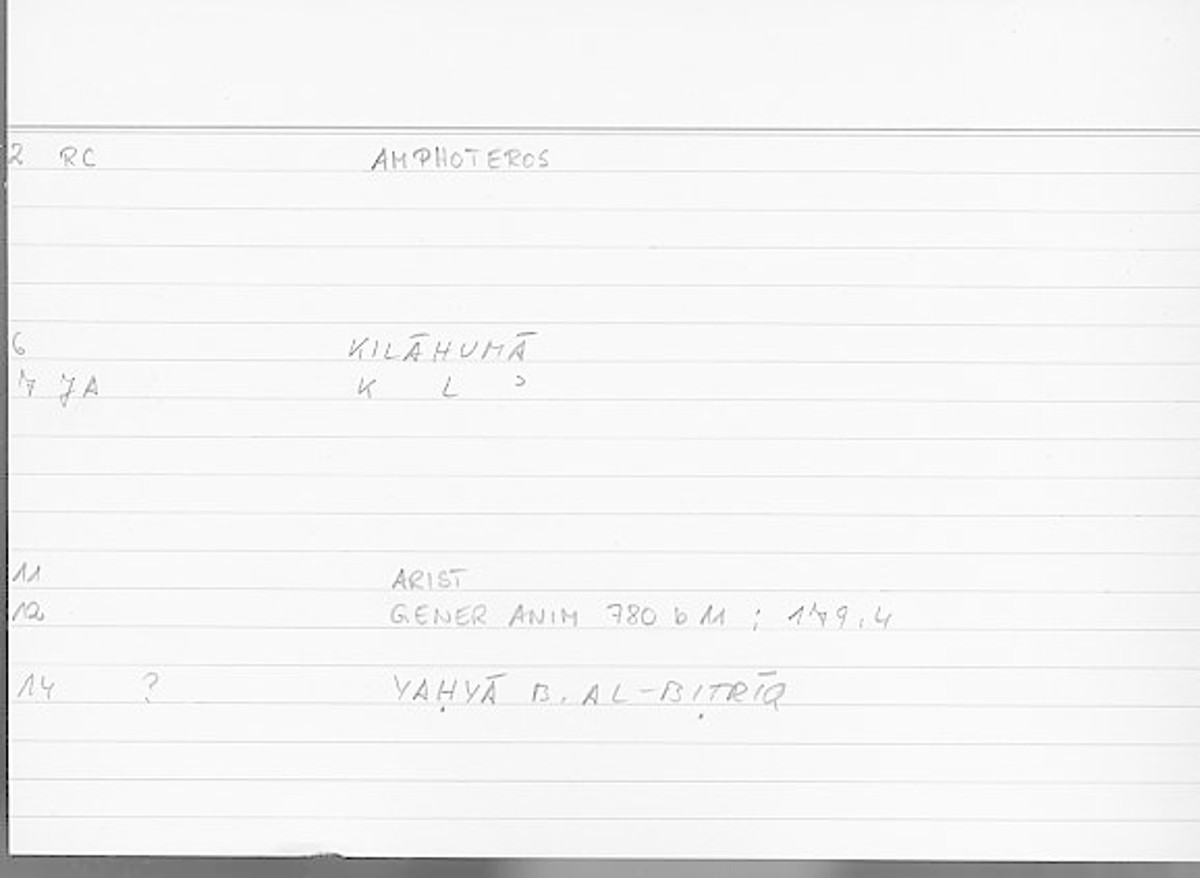 2 RC AMPHOTEROS
6 KILĀHUMĀ
7 JA K L ʾ
11 ARIST
12 GENER ANIM 780 b 11 ; 179.4
14 ? YAḤYĀ B. AL-BIṬRĪQ